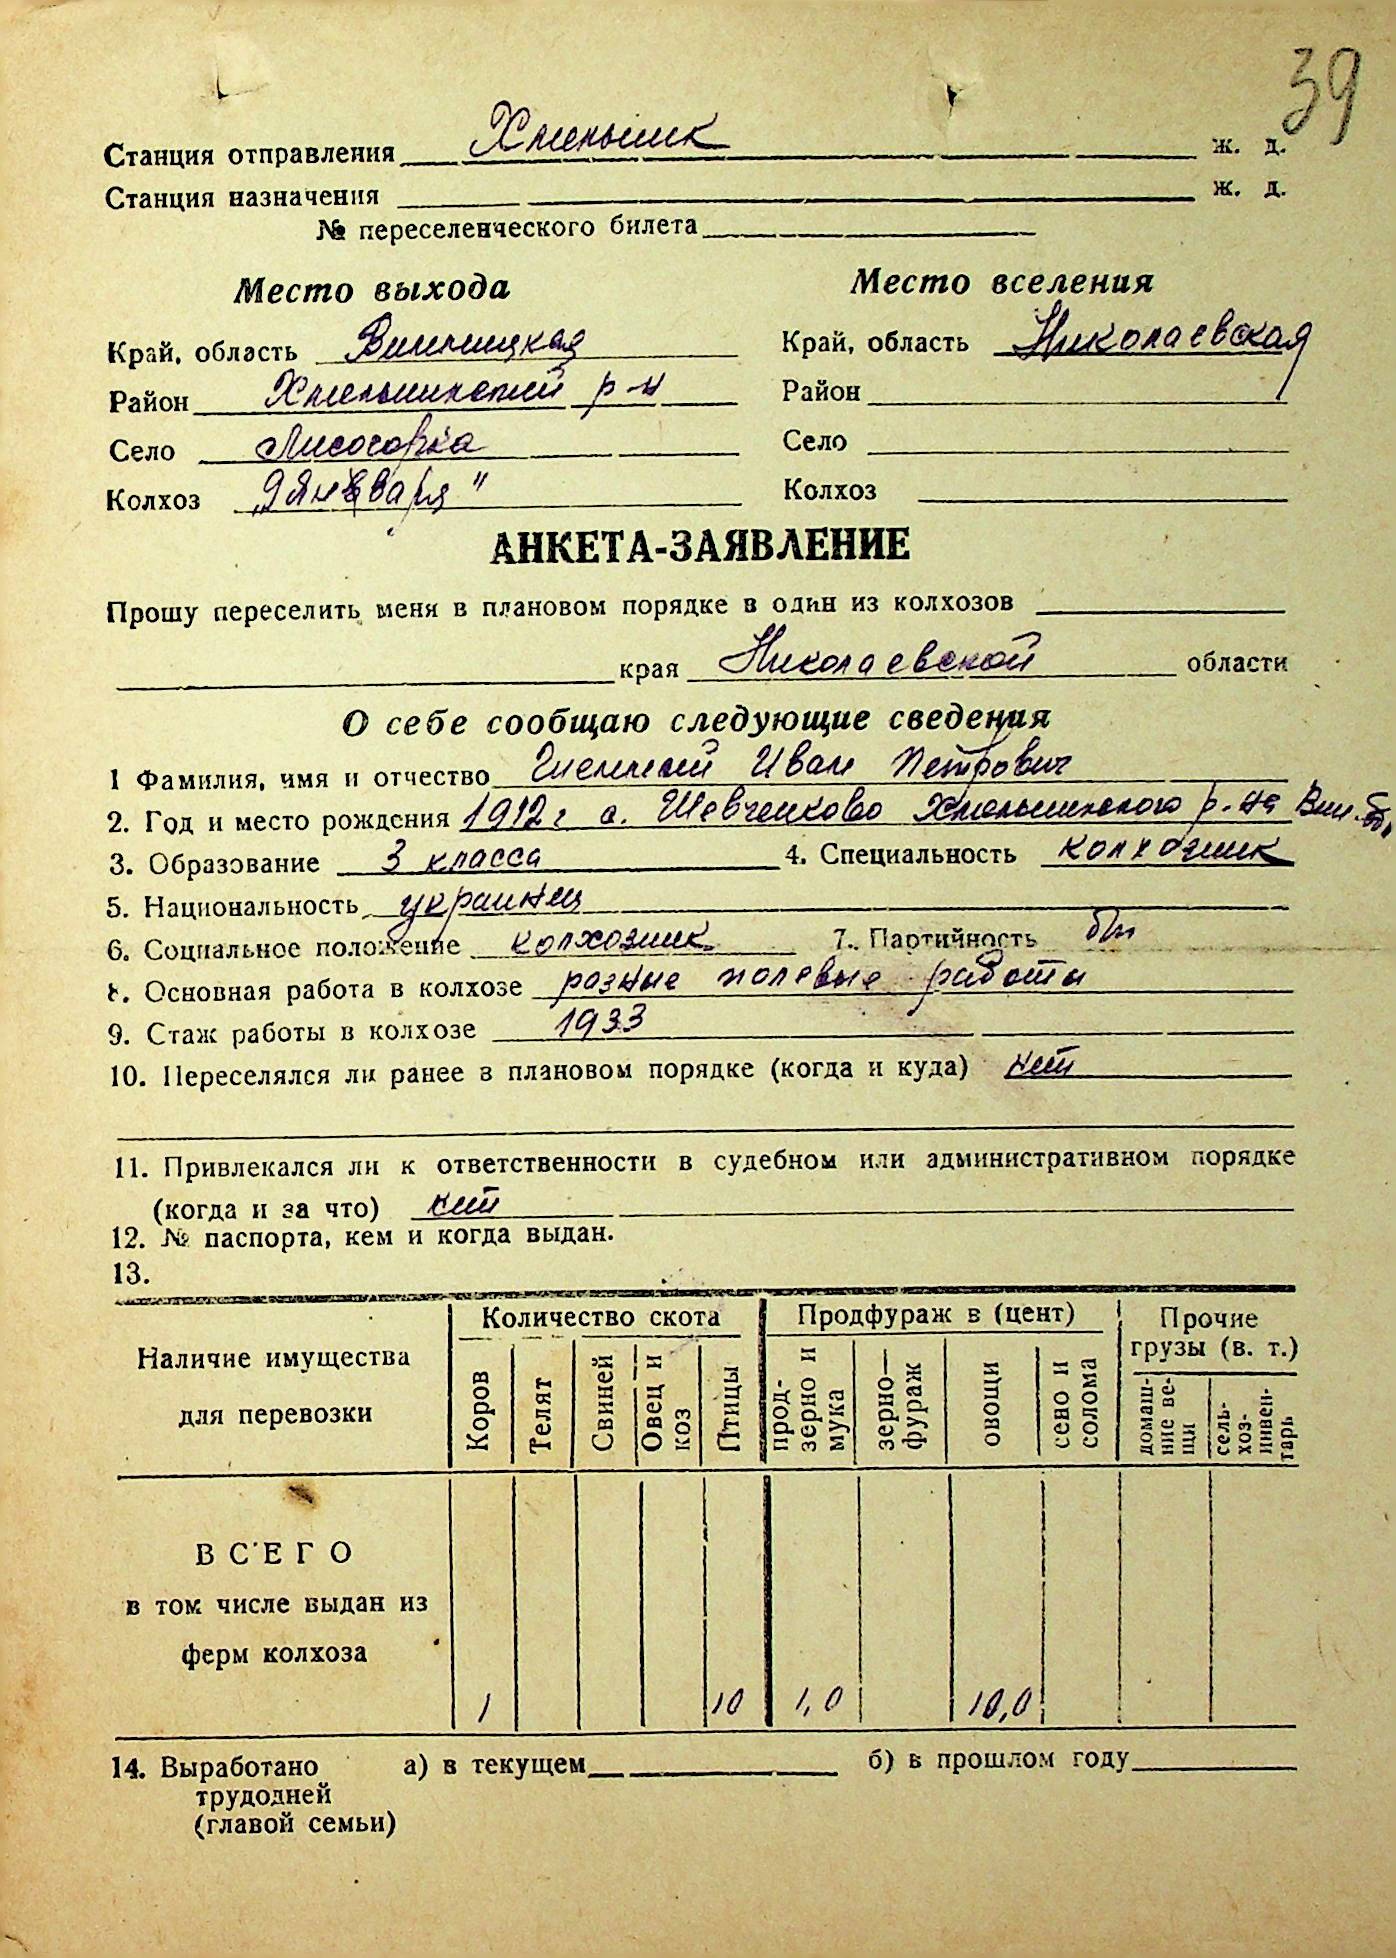 39
Станция отправления Хмельник ж. д.
Станция назначения ж. д.
№ переселенческого билета
Место выхода
Место вселения
Край, область Винницкая
Край, область Николаевская
Район Хмельникский р-н
Район
Село Лисогорка
Село
Колхоз „9 января"
Колхоз
АНКЕТА-ЗАЯВЛЕНИЕ
Прошу переселить меня в плановом порядке в один из колхозов
края Николаевской области
О себе сообщаю следующие сведения
1 Фамилия, имя и отчество Иван Петрович
2. Год и место рождения 1912 г с. Шевченково Хмельникского р-на Вин. об.
3. Образование 3 класса 4. Специальность колхозник
5. Национальность украинец
6. Социальное положение колхозник 7. Партийность бп
8. Основная работа в колхозе разные полевые работы
9. Стаж работы в колхозе 1933
10. Переселялся ли ранее в плановом порядке (когда и куда) нет
11. Привлекался ли к ответственности в судебном или административном порядке
(когда и за что) нет
12. № паспорта, кем и когда выдан.
13.
Наличие имущества
для перевозки
Количество скота
Продфураж в (цент)
Прочие
грузы (в. т.)
Коров
Телят
Свиней
Овец и
коз
Птицы
прод-
зерно и
мука
зерно—
фураж
овощи
сено и
солома
домаш-
ние ве-
щи
сель-
хоз-
инвен-
тарь
ВСЕГО
в том числе выдан из
ферм колхоза
1 10 1,0 10,0
14. Выработано а) в текущем б) в прошлом году
трудодней
(главой семьи)